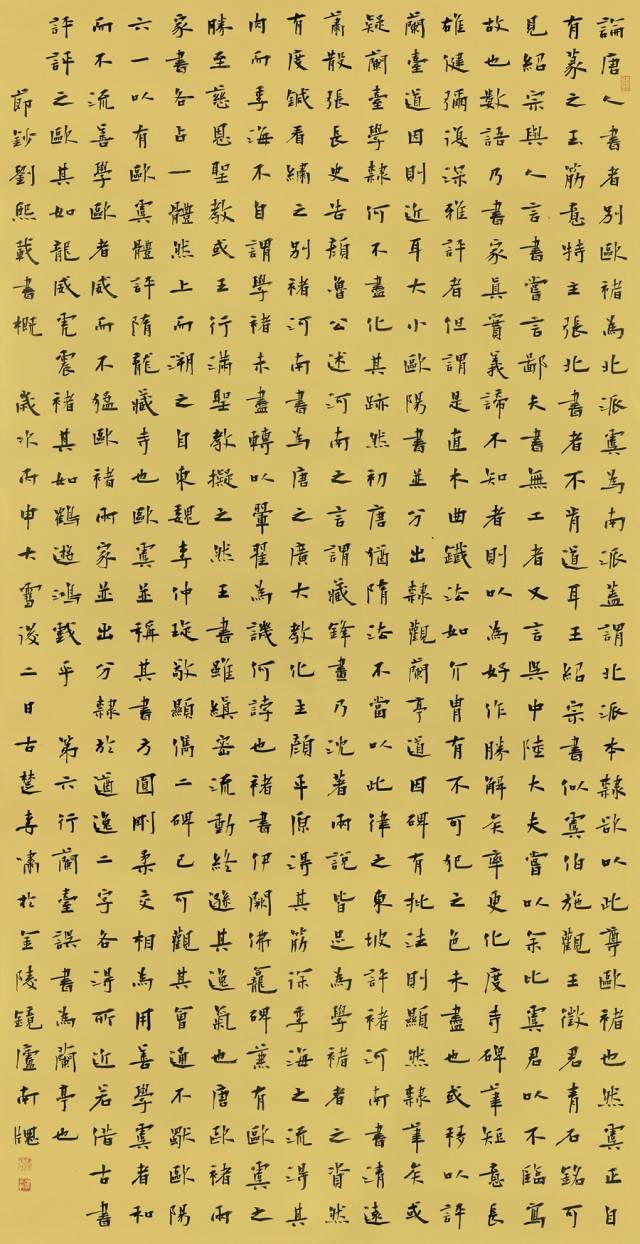 論唐人書者別歐褚為北派虞為南派蓋謂北派本隸欲以此尊歐褚也然虞正自
有篆之玉筋意特主張北書者不肯道耳王紹宗書似虞伯施觀王徵君青石銘可
見紹宗與人言書嘗言鄙夫書無工者又言吳中陸大夫嘗以余比虞君以不臨寫
故也數語乃書家真實義諦不知者則以為好作勝解矣率更化度寺碑筆短意長
雄健彌復深雅評者但謂是直木曲鐵法如介胄有不可犯之色未盡也或移以評
蘭臺道因則近耳大小歐陽書並分出隸觀蘭亭道因碑有批法則顯然隸筆矣或
疑蘭臺學隸何不盡化其跡然初唐猶隋法不當以此律之東坡評褚河南書清遠
蕭散張長史告顏魯公述河南之言謂藏鋒畫乃沈著兩說皆足為學褚者之資然
有度鍼看繡之別褚河南書為唐之廣大教化主顏平原得其筋徐季海之流得其
肉而季海不自謂學褚未盡轉以翬翟為譏何誖也褚書伊闕佛龕碑兼有歐虞之
勝至慈恩聖教或王行滿聖教擬之然王書雖縝密流動終遜其逸氣也唐歐褚兩
家書各占一體然上而溯之自東魏李仲琁敬顯儁二碑已可觀其會通不歇歐陽
六一以有歐虞體評隋龍藏寺也歐虞並稱其書方圓剛柔交相為用善學虞者和
而不流善學歐者威而不猛歐褚兩家並出分隸於遒逸二字各得所近若借古書
評評之歐其如龍威虎震褚其如鶴遊鴻戲乎　第六行蘭臺誤書為蘭亭也
節鈔劉熙載書概　歲次丙申大雪後二日古楚李於金陵鏡廬南牕